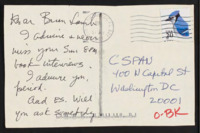 Dear Brian Lamb
I admire - never
miss your Sun Eve
book interviews.
I admire you,
period.
And PS. Will
you ask
C SPAN
400 N Capitol St
Washington DC
20001
C-BK